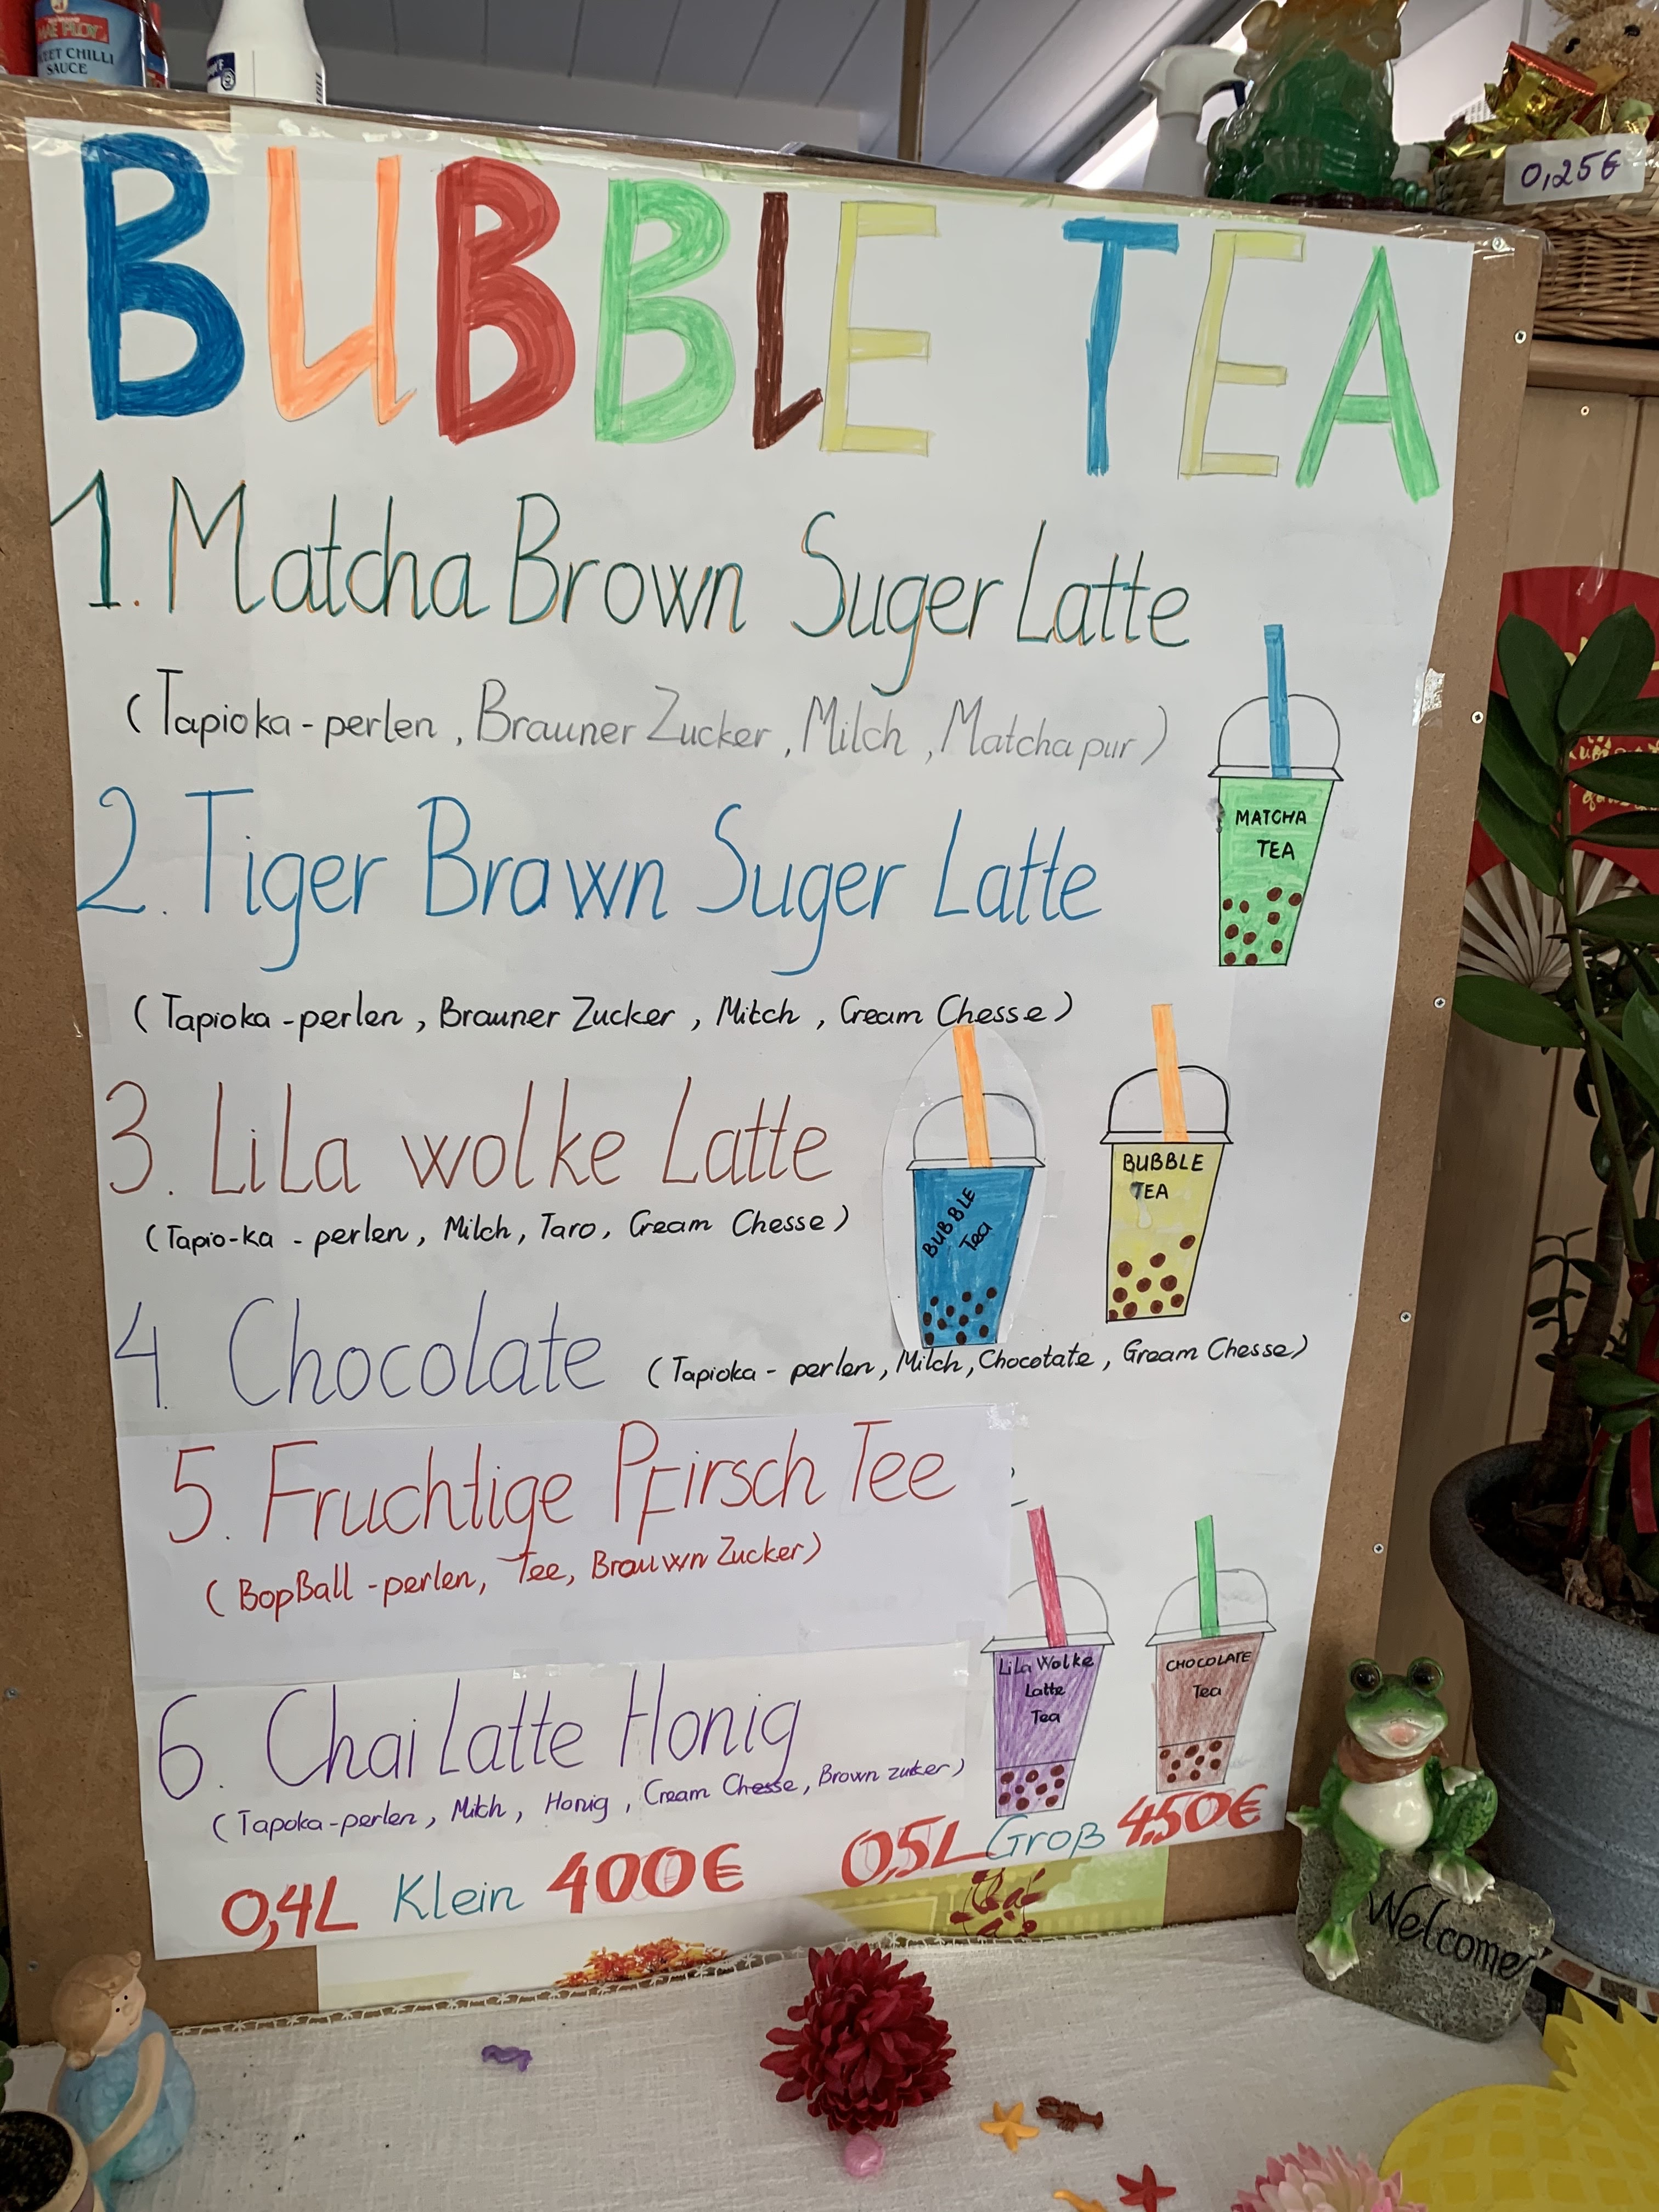 MAE PLOY
SWEET CHILLI
SAUCE
0,25€
BUBBLE TEA
1. Matcha Brown Suger Latte
(Tapioka-perlen, Brauner Zucker, Milch, Matcha pur)
MATCHA
TEA
2. Tiger Brawn Suger Latte
(Tapioka-perlen, Brauner Zucker, Mitch, Cream Chesse)
3. LiLa wolke Latte
(Tapio-ka - perlen, Milch, Taro, Cream Chesse)
BUBBLE
Tea
BUBBLE
TEA
4. Chocolate (Tapioka - perlen, Milch, Chocotate, Gream Chesse)
5. Fruchtige Pfirsch Tee
(BopBall-perlen, Tee, Brauwn Zucker)
LiLa Wolke
Latte
Tea
CHOCOLATE
Tea
6. Chai Latte Honig
(Tapoka-perlen, Milch, Honig, Cream Chesse, Brown zucker)
0,4L Klein 400€ 0,5L Groß 4,50€
Welcome